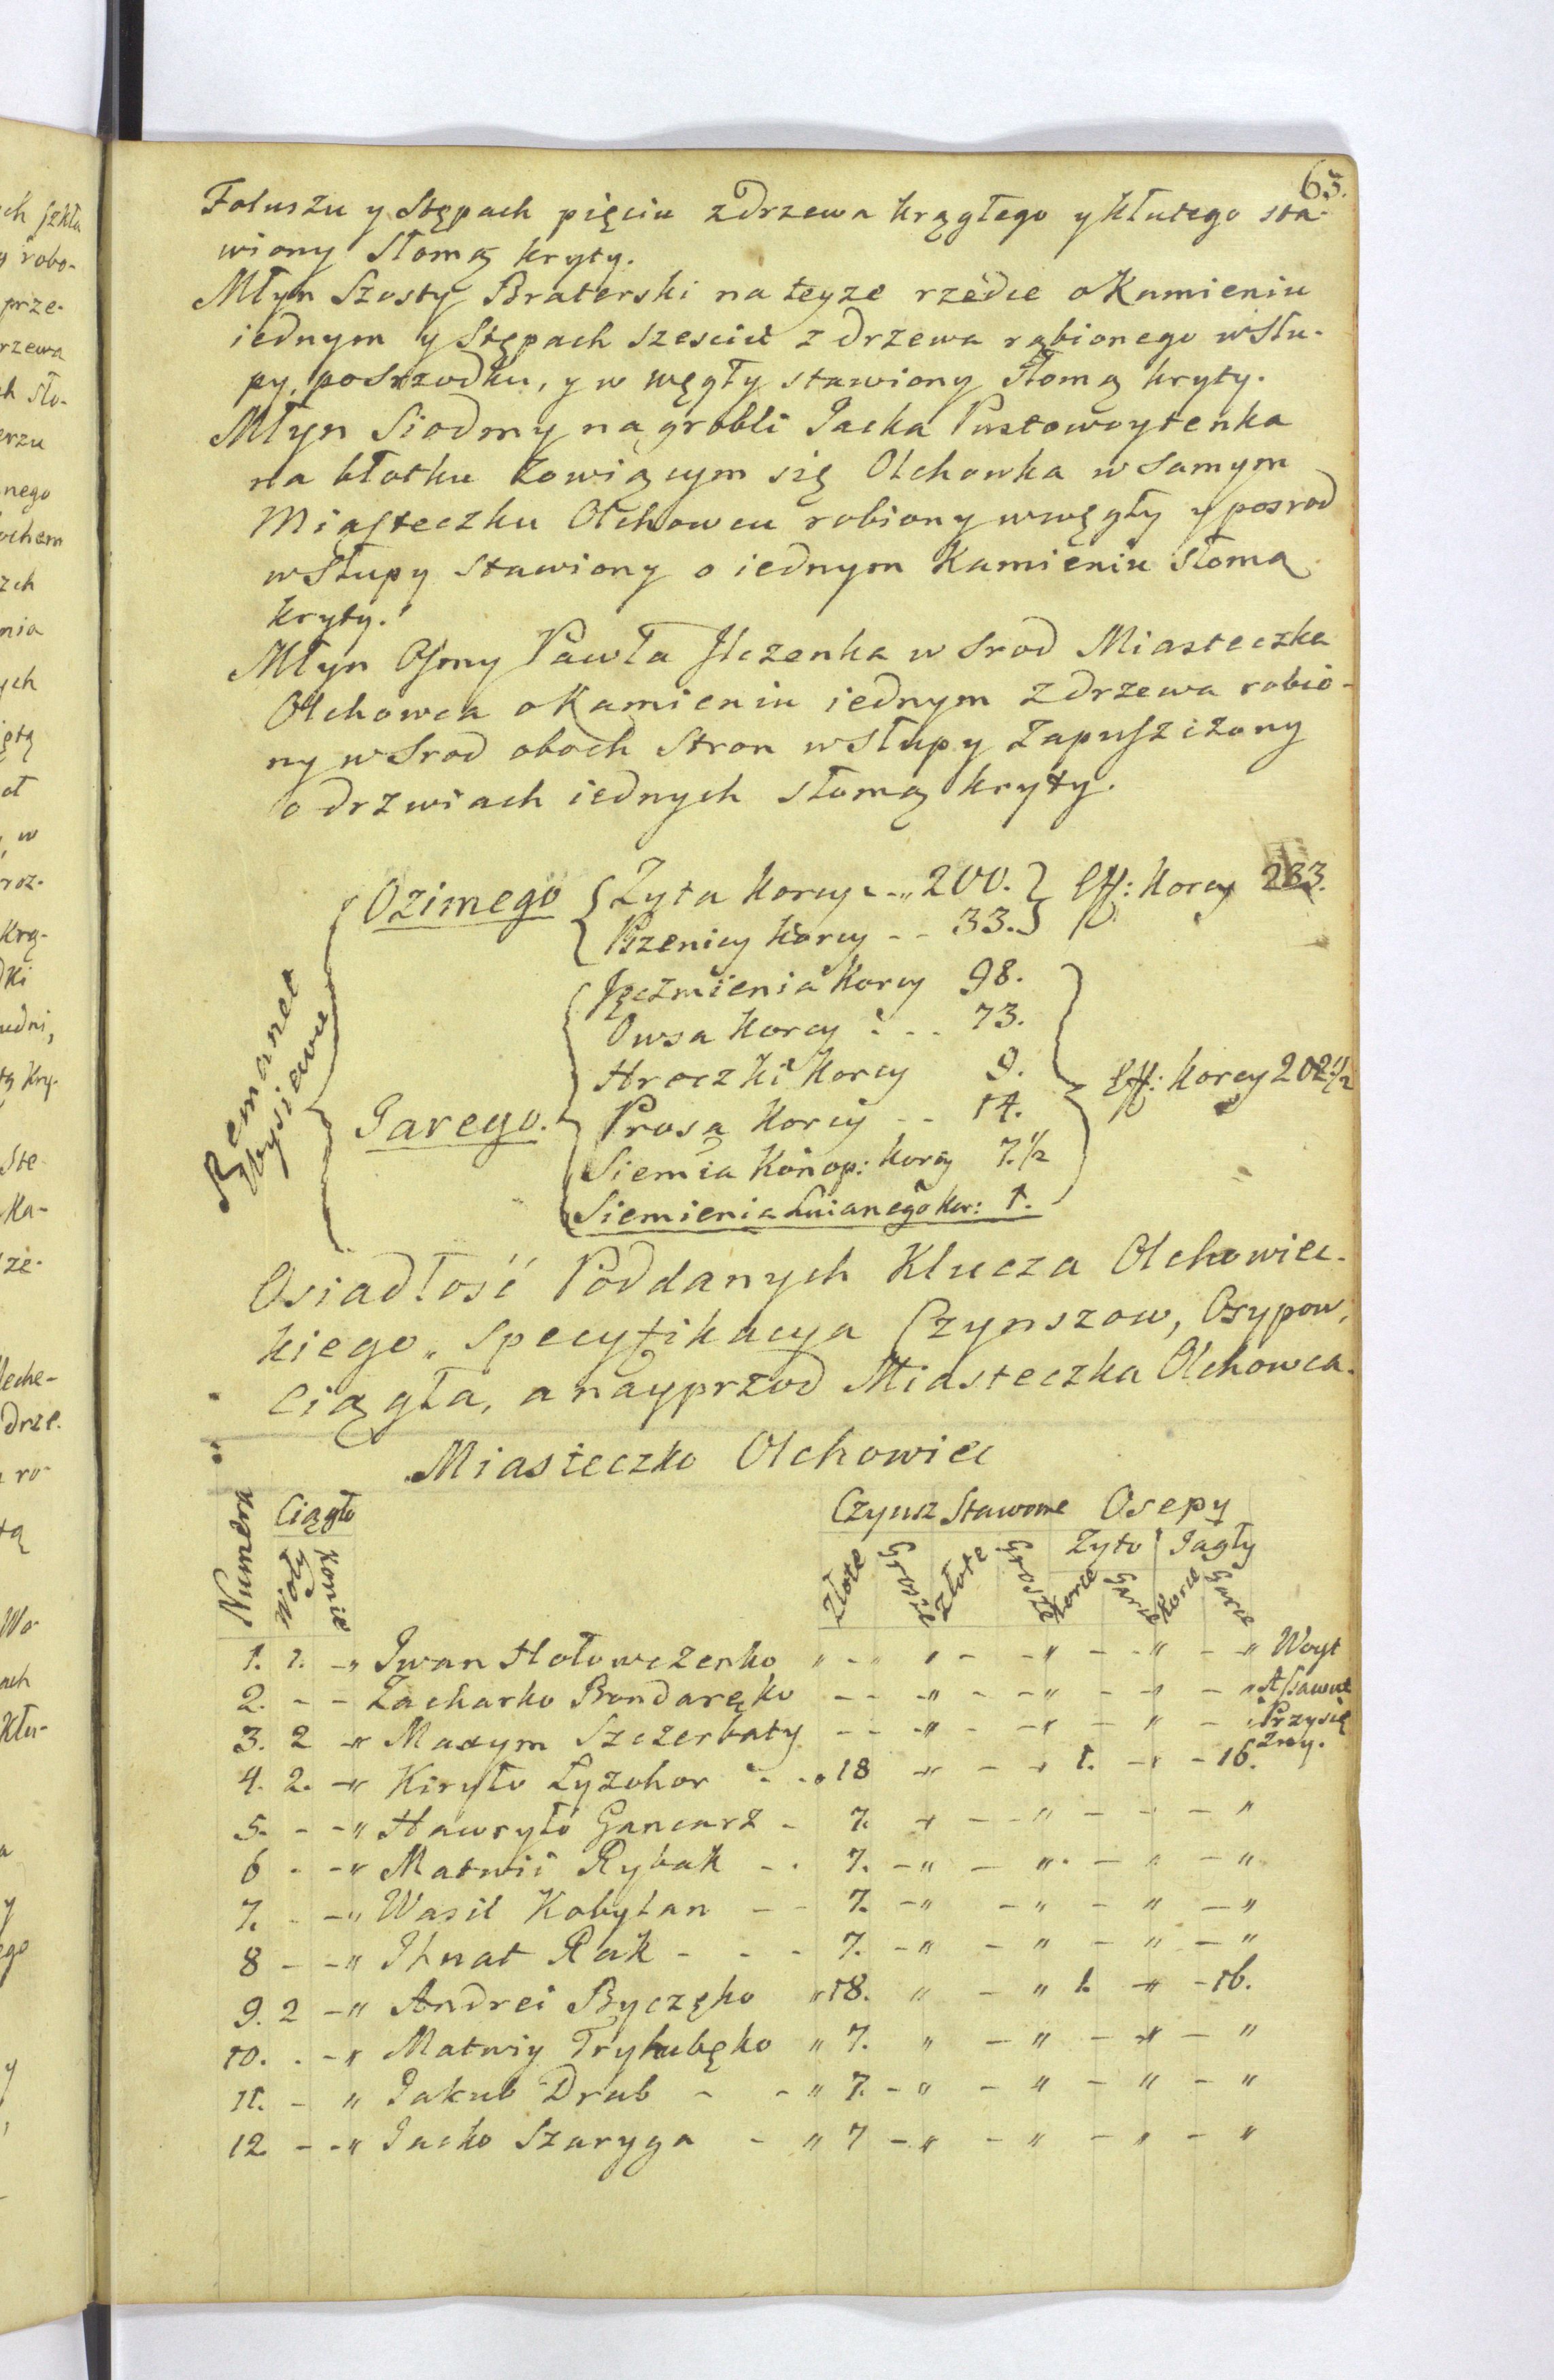 63.
Foluszu y Stępach pięciu z drzewa krągłego y kłutego sta-
wiony Słomą kryty.
Młyn Szosty Braterski na teyze rzedce o Kamieniu
iednym y Stępach szesciu z drzewa rąbionego w Słu-
py, posrzodku, y w węgły stawiony Słomą kryty.
Młyn Siodmy na grobli Jacka Pustowoytenka
na błotku zowiącym się Olchowka w samym
Miasteczku Olchowcu robiony w węgły y posrod
w Słupy Stawiony o iednym Kamieniu Słomą
kryty.
Młyn Osmy Pawła Ilczenka w Srod Miasteczka
Olchowca o Kamieniu iednym z drzewa robio-
ny w Srod oboch Stron w Słupy Zapuszczony
o drzwiach iednych Słomą kryty.
Remanet
Wysiewu
Ozimego Zyta korcy 200. Eff: Korcy 233.
Pszenicy Korcy -- 33.
Jęczmienia Korcy 98.
Owsa Korcy - - - 73.
Hreczki Korcy 9. Eff: korcy 202 1/2
Jarego. Prosa Korcy -- 14.
Siemia Konop: korcy 7.1/2
Siemienia Lnianego kor: 1.
Osiadłość Poddanych Klucza Olchowiec-
kiego, specyfikacya Czynszow, Osypow,
Ciągła, a nayprzod Miasteczka Olchowca.
Miasteczko Olchowiec
Numera Ciągło Czynsz Stawowe Osepy
Woły Konie Złote Grosze Złote Grosze Zyto Jagły
Korce Garce Korce Garce
1. 1. - " Iwan Hołowczenko " - " " - - " - - " - " Woyt
2. - - Zacharko Bondaręko - - " - - " - " - " Assawuł
3. 2 - " Maxym Szczerbaty - - " - - " - " - " Przysię
zny.
4. 2. - " Kiryło Łyzohor - - " 18 - " - " 1. - " - 16.
5. - - " Hawryło Gancarz - 7. - " - - " - - - "
6 - - " Matwii Rybak - - 7. - " - " - " - "
7. - - " Wasil Kobylan - - 7. - " - " - " - "
8 - - " Ihnat Rak - - - 7. - " - " - " - "
9. 2 - " Andrei Byczęko " 18. " - " 1. - " - 16.
10. . - " Matwiy Tryhubęko " 7. " - " - " - "
11. - " Jakub Drab - - " 7. - " - " - " - "
12 - - " Jacko Szaryga - " 7 - " - " - " - "